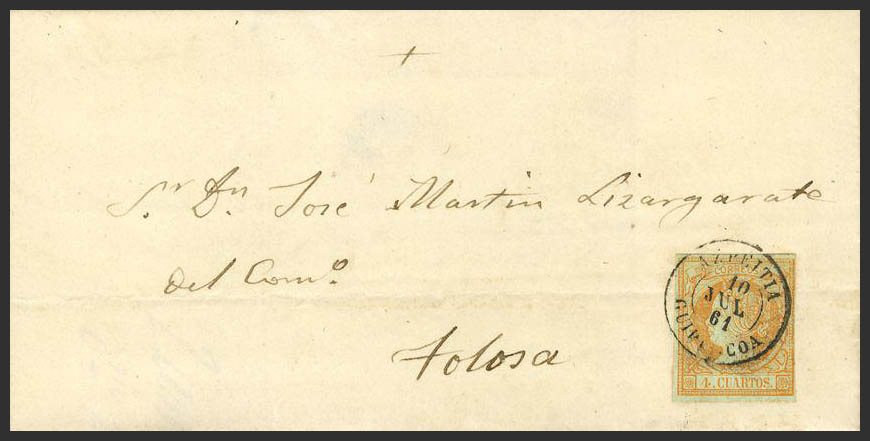 +
Sr. Dn. José Martin Lizargarate
del Como.
Tolosa
CORREOS
4. CUARTOS.
AZPEITIA
10
JUL
61
GUIPUZCOA